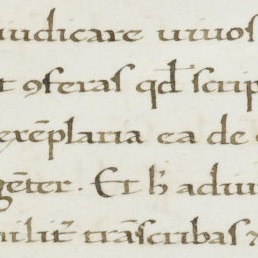 iudicare uiuos
t ꝯferas qđ scrip
exēplaria ea de
gēter. Et ħ adiu
ilit᷑ trāscribas ⁊